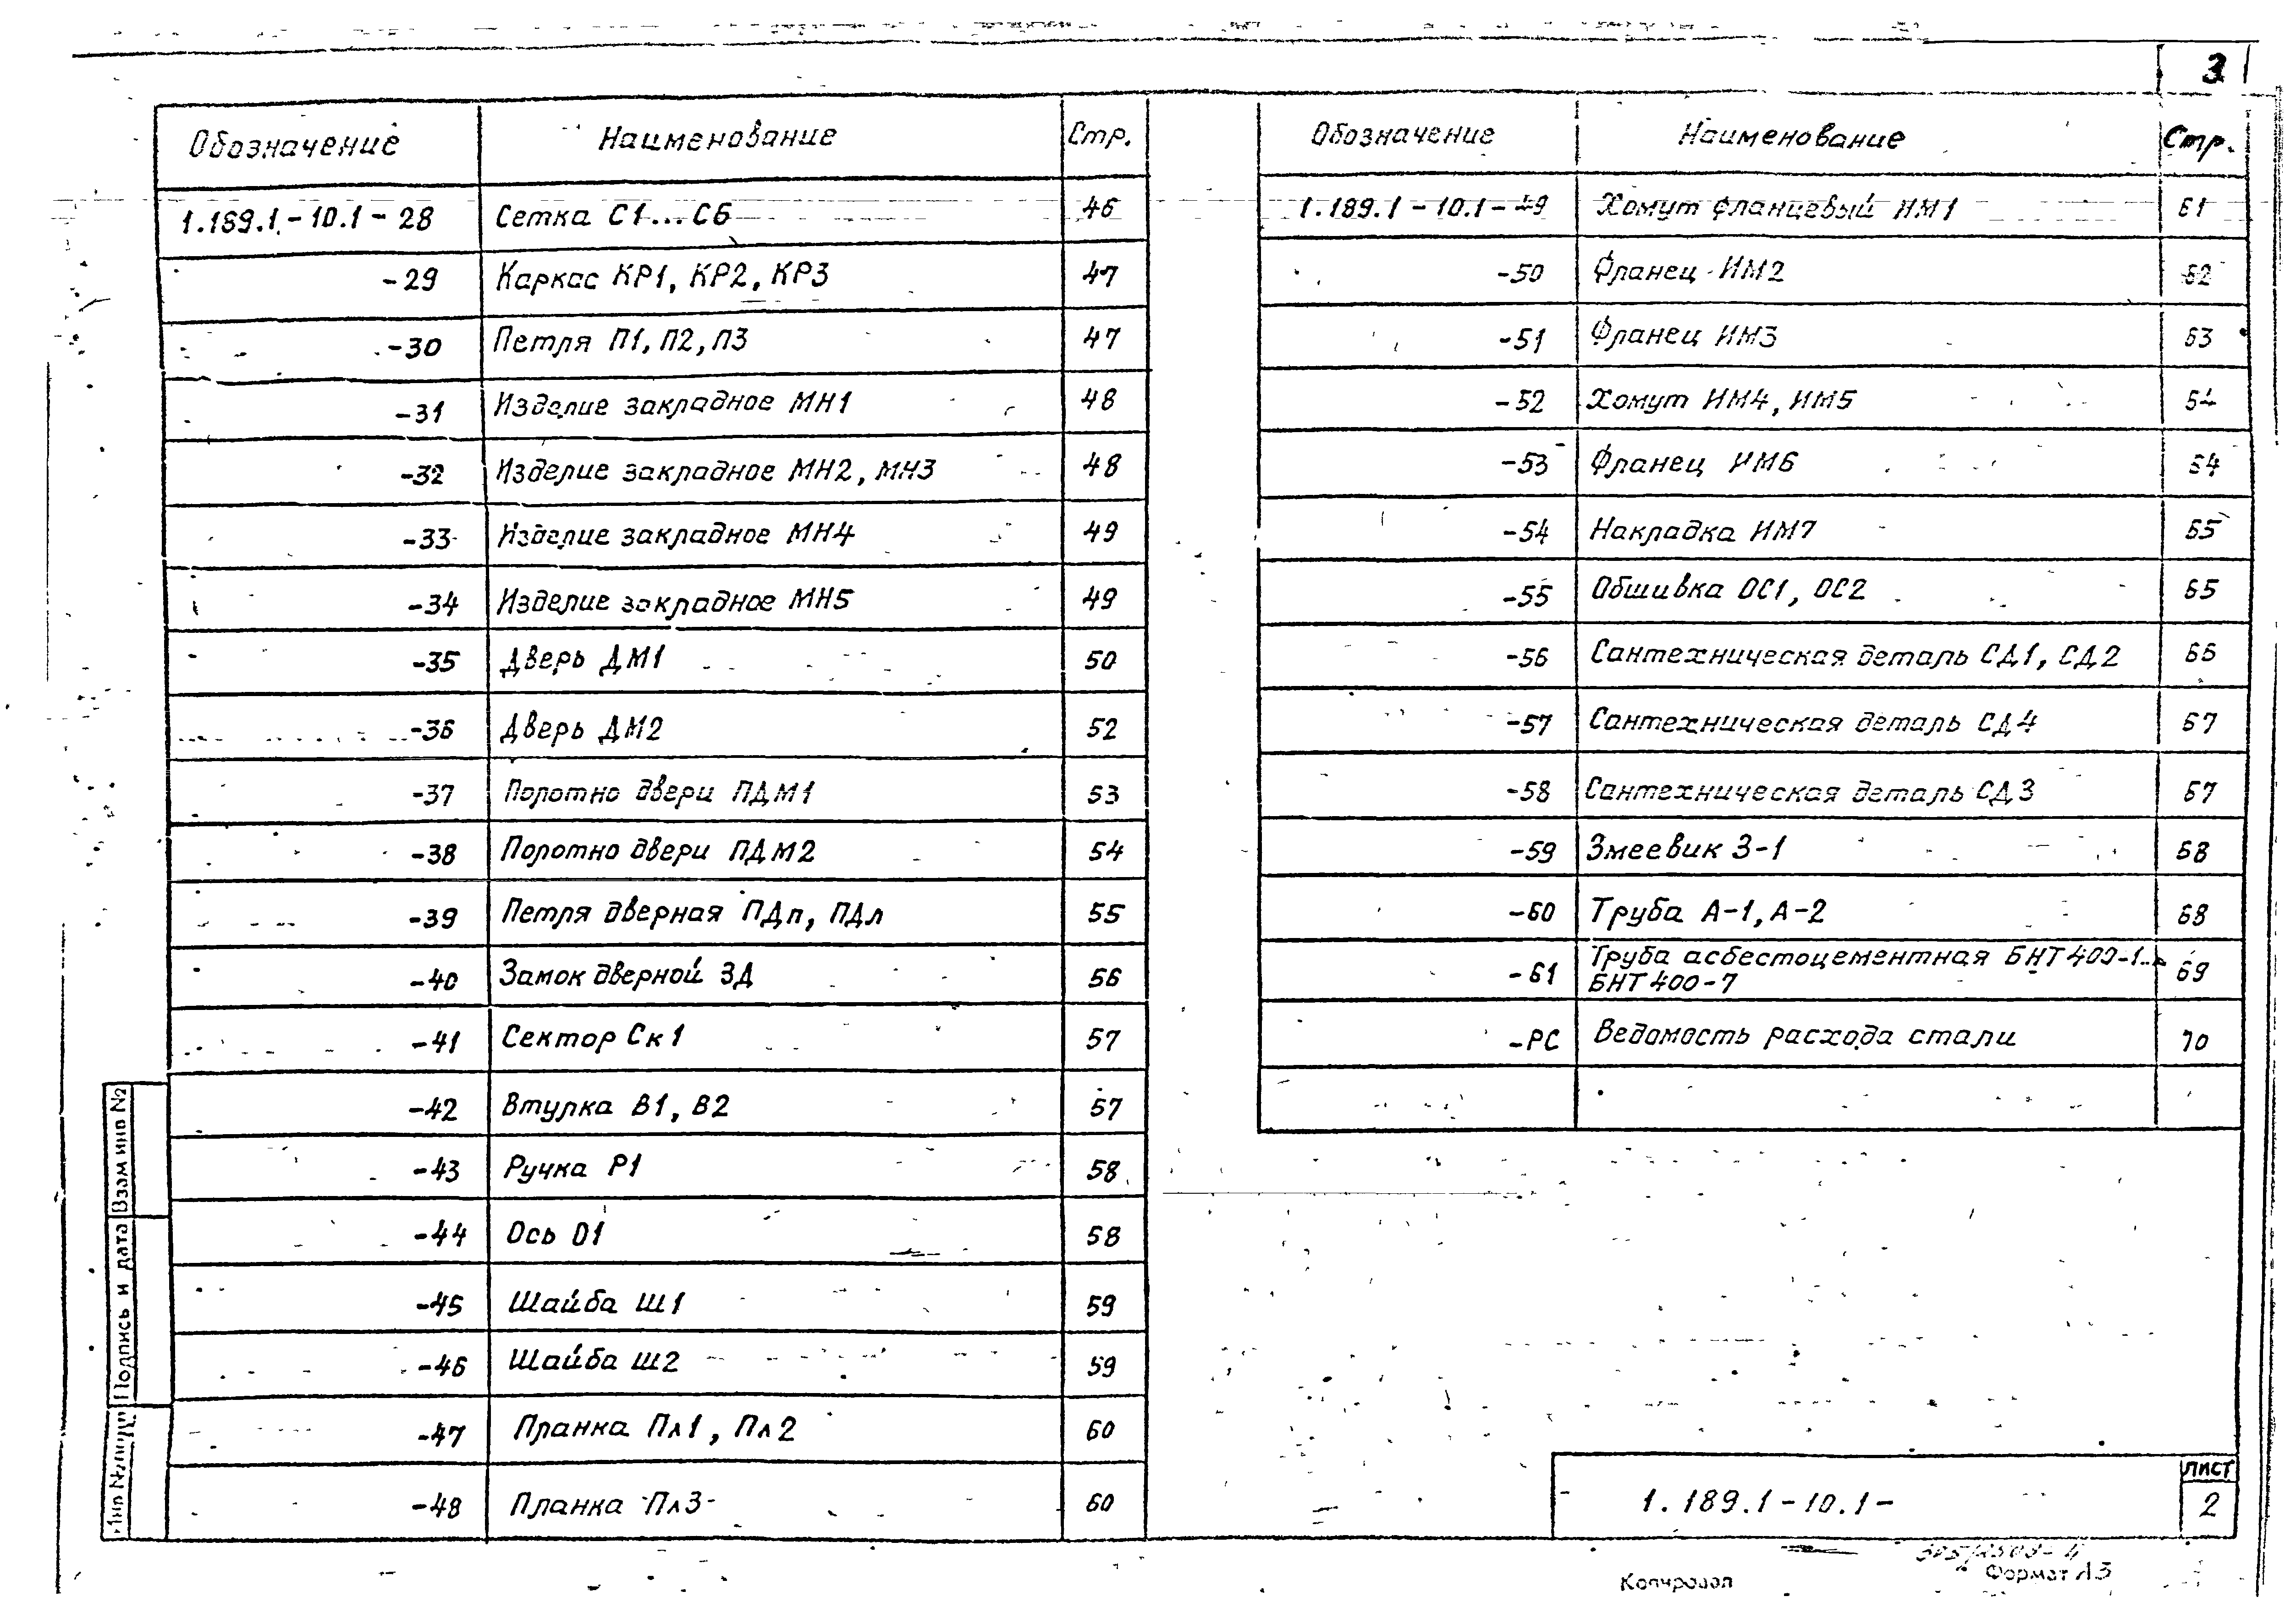 3
Обозначение Наименование Стр.
1.189.1-10.1-28 Сетка С1...С6 46
-29 Каркас КР1, КР2, КР3 47
-30 Петля П1, П2, П3 47
-31 Изделие закладное МН1 48
-32 Изделие закладное МН2, МН3 48
-33 Изделие закладное МН4 49
-34 Изделие закладное МН5 49
-35 Дверь ДМ1 50
-36 Дверь ДМ2 52
-37 Полотно двери ПДМ1 53
-38 Полотно двери ПДМ2 54
-39 Петля дверная ПДп, ПДл 55
-40 Замок дверной ЗД 56
-41 Сектор Ск1 57
-42 Втулка В1, В2 57
-43 Ручка Р1 58
-44 Ось О1 58
-45 Шайба Ш1 59
-46 Шайба Ш2 59
-47 Планка Пл1, Пл2 60
-48 Планка Пл3 60
Обозначение Наименование Стр.
1.189.1-10.1-49 Хомут фланцевый ИМ1 61
-50 Фланец ИМ2 62
-51 Фланец ИМ3 63
-52 Хомут ИМ4, ИМ5 64
-53 Фланец ИМ6 64
-54 Накладка ИМ7 65
-55 Обшивка ОС1, ОС2 65
-56 Сантехническая деталь СД1, СД2 66
-57 Сантехническая деталь СД4 67
-58 Сантехническая деталь СД3 67
-59 Змеевик З-1 68
-60 Труба А-1, А-2 68
-61 Труба асбестоцементная БНТ 400-1...
БНТ 400-7 69
-РС Ведомость расхода стали 70
Взам инв №
Подпись и дата
1.189.1-10.1-
Лист
2
Копировал
Формат А3